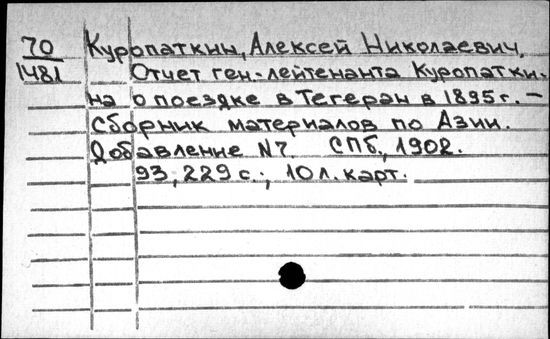 70 Куропаткин, Алексей Николаевич.
1481 Отчет ген.-лейтенанта Куропатки-
на о поездке в Тегеран в 1895 г. –
Сборник материалов по Азии.
Добавление N7. СПб., 1902.
93, 229 с.; 10 л. карт.